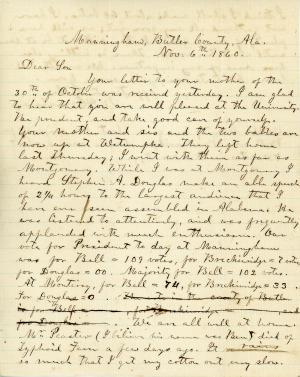 Manningham, Butler County, Ala.
Nov. 6th 1860.
Dear Son
Your letter to your mother of the
30th of October was received yesterday. I am glad
to hear that you are well pleased at the University.
Be prudent, and take good care of yourself.
Your mother and sis and the two babies are
now up at Wetumpka. They left home
last Thursday; I went with them as far as
Montgomery. While I was at Montgomery I
heard Stephen A. Douglas make an able speech
of 2¾ hours to the largest audience that I
have ever seen assembled in Alabama. He
was listened to attentively, and was frequently
applauded with much enthusiasm. Our
vote for President to day at Manningham
was for Bell = 109 votes, for Breckinridge = 7 votes
for Douglas = 00. Majority for Bell = 102 votes.
At Monterey, for Bell = 74, for Breckinridge = 33.
For Douglas = 0. in the county of Butler
is for Bell for Breckinridge and
We are all well at home.
Mr. Peacock (I believe his name was Ben) died of
Typhoid Fever a few days ago. It rains
so much that I get my cotton out very slow.